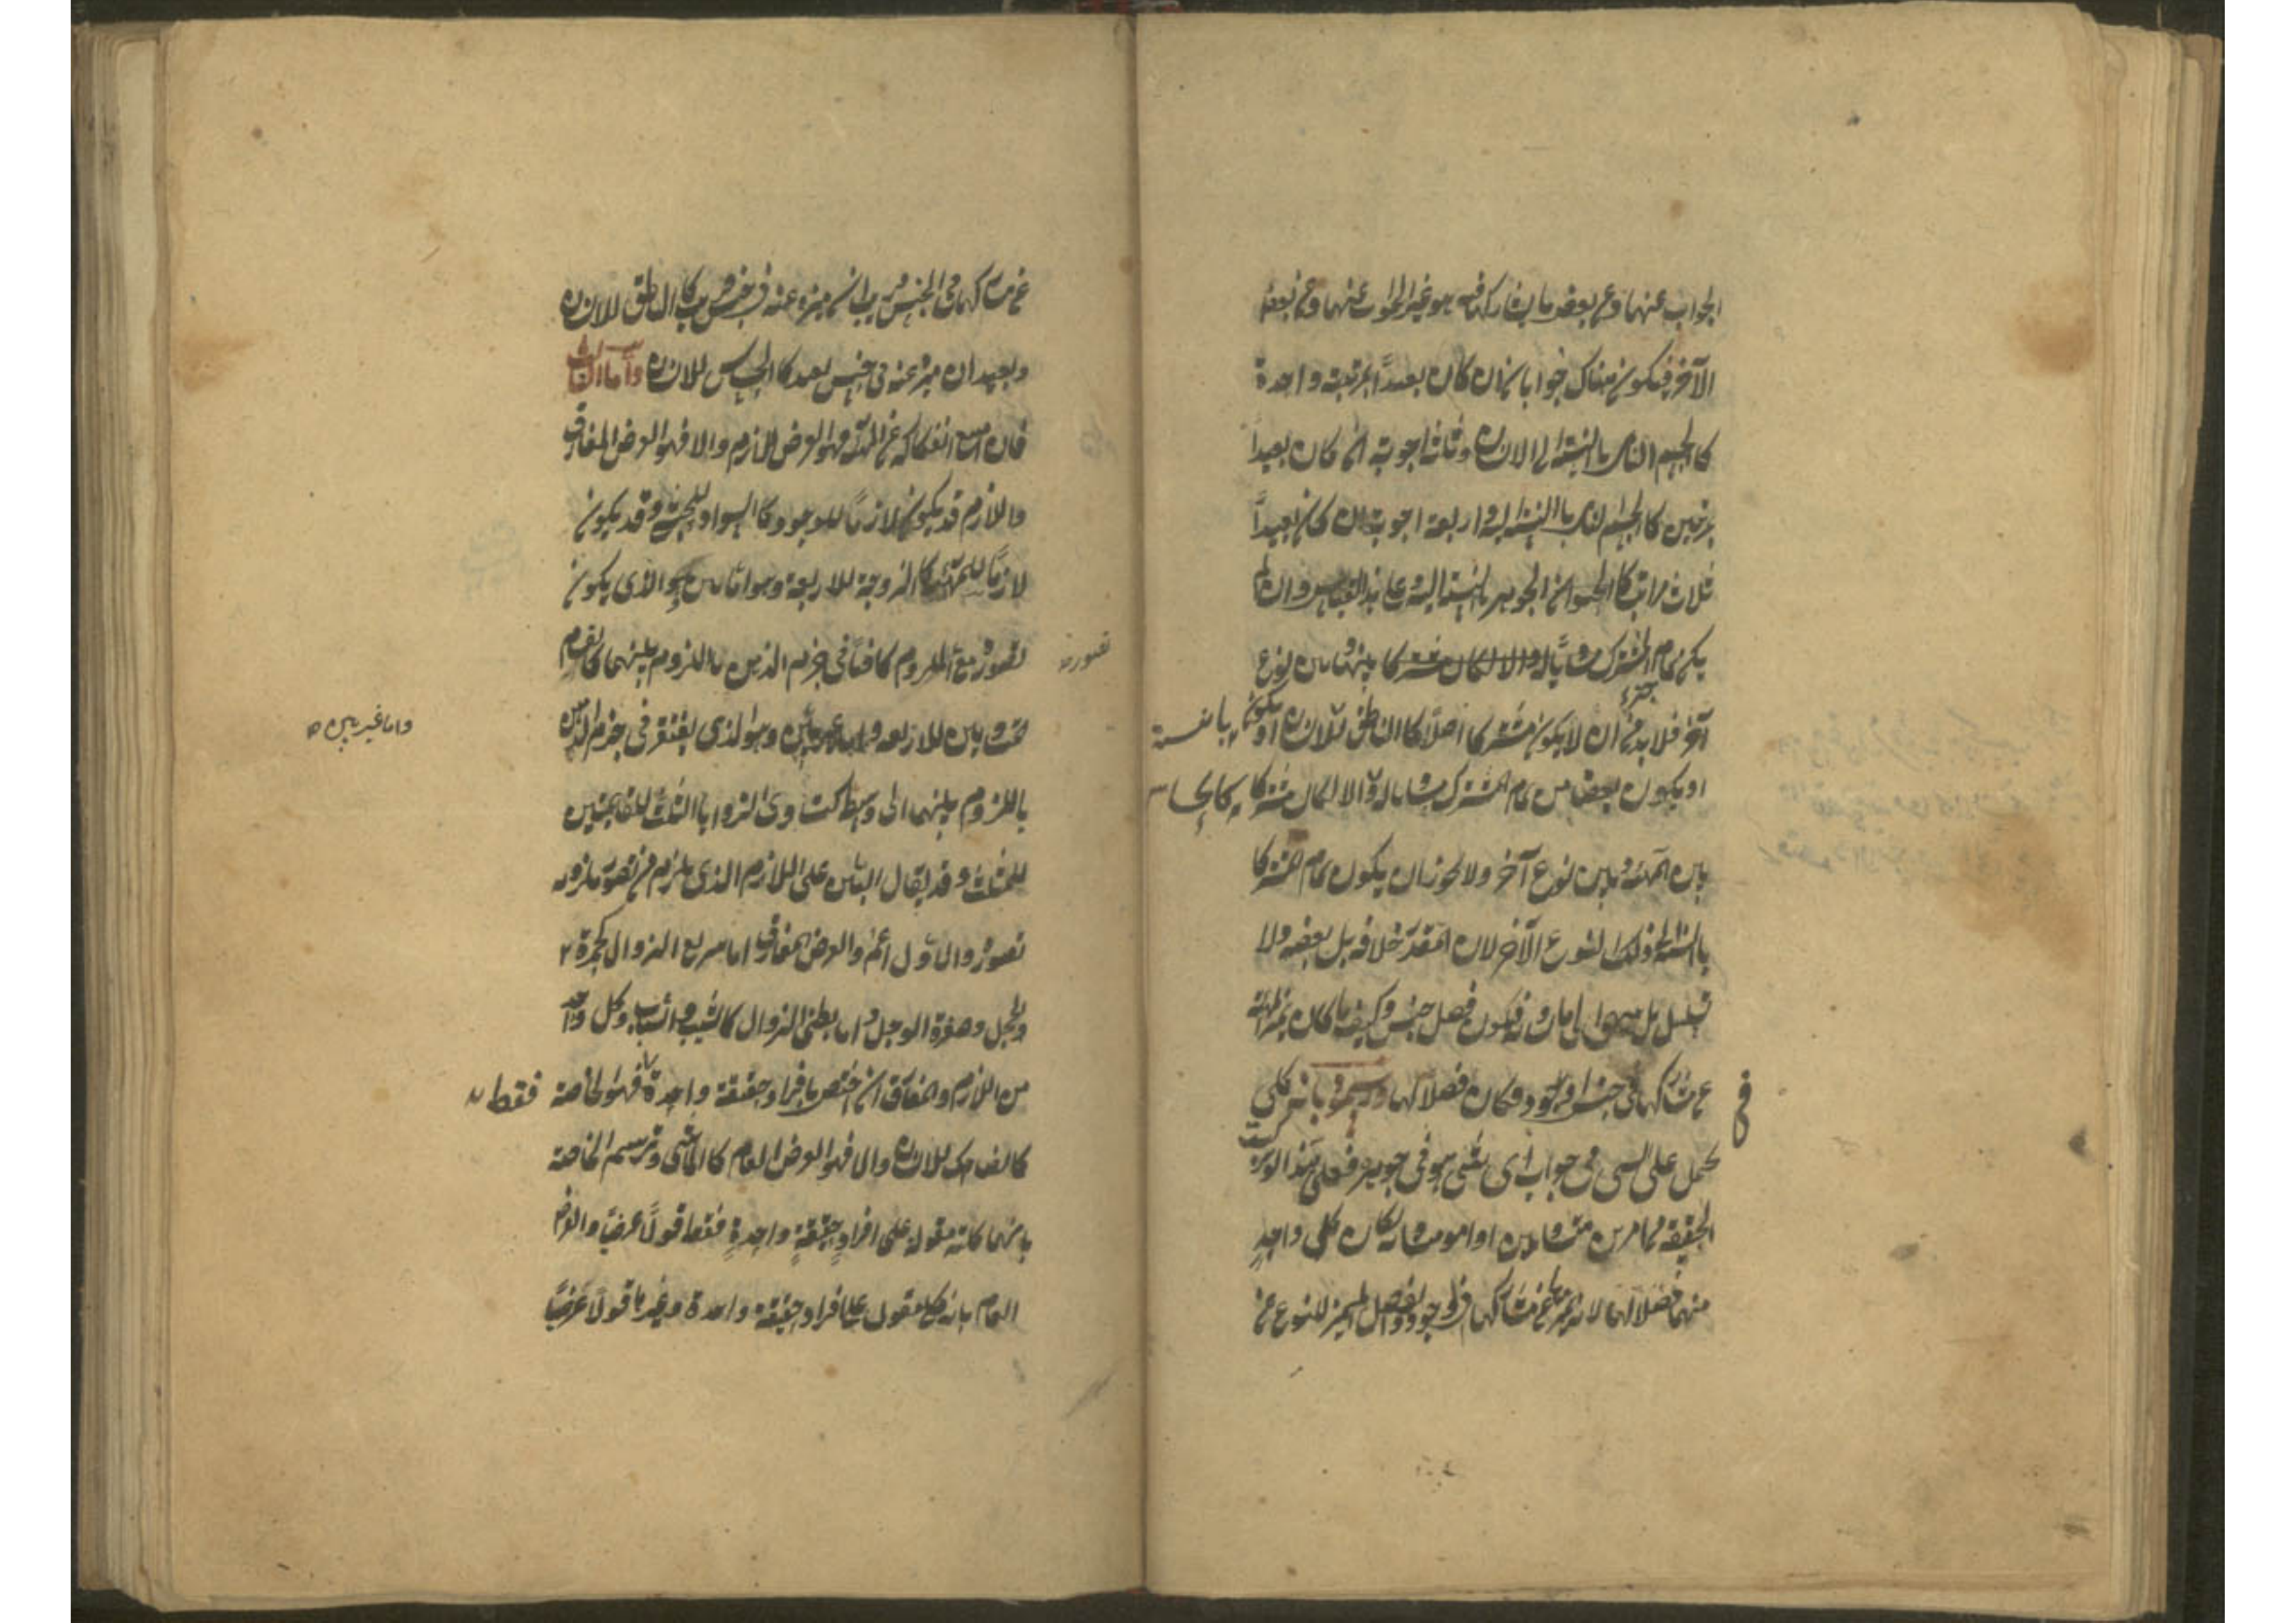 الجواب عنها وعن بعض ما يشاركها فيه هو غير الجواب عنها وعن بعض
الآخر فيكون هناك جوابان ان كان بعيداً بمرتبة واحدة
كالجسم النامي بالنسبة الى الانسان وثلثة اجوبة ان كان بعيداً
بمرتبتين كالجسم بالنسبة اليه واربعة اجوبة ان كان بعيداً
ثلاث مراتب كالجوهر بالنسبة اليه على هذا القياس وان لم
يكن تمام المشترك والا لكان مشتركا بينها وبين نوع
آخر فلا بد من ان لا يكون مشتركا اصلاً كالناطق للانسان او يكون
او يكون بعضا من تمام المشترك مساويا له والا لكان مشتركا كالحساس
بين المهية وبين نوع آخر ولا يجوز ان يكون تمام المشترك
بالنسبة الى ذلك النوع الآخر لان المقدر خلافه بل بعضه ولا
يتسلسل بل ينتهى الى ما يساويه فيكون فصل جنس وكيف ما كان يميز المهية
عن مشاركها فى جنس او وجود فكان فصلا لها ورسموه بانه كلى
فى
يحمل على الشى فى جواب اى شئ هو فى جوهره فعلى هذا لو تركبت
الحقيقة من امرين متساويين او امور متساوية كان كل واحدٍ
منها فصلا لها لانه يميزها عن مشاركها فى الوجود والفصل المميز للنوع عن
عن مشاركها فى الجنس قريب ان ميزه عنه فى جنس قريب كالناطق للانسان
وبعيد ان ميزه عنه فى جنس بعيد كالحساس للانسان واما الثالث
فان امتنع انفكاكه عن المهية فهو العرض اللازم والا فهو العرض المفارق
واللازم قد يكون لازماً للوجود كالسواد للحبشى وقد يكون
لازماً للمهية كالزوجية للاربعة وهو اما بين وهو الذى يكون
تصوره مع الملزوم كافياً فى جزم الذهن باللزوم بينهما كالانقسام
تصوره
بمتساويين للاربعة واما غير بين وهو الذى يفتقر فى جزم الذهن
واما غير بين
باللزوم بينهما الى وسط كتساوى الزوايا الثلث للقائمتين
للمثلث وقد يقال البين على اللازم الذى يلزم من تصور ملزومه
تصوره والاول اعم والعرض المفارق اما سريع الزوال كحمرة
الخجل وصفرة الوجل واما بطئ الزوال كالشيب والشباب وكل واحد
من اللازم والمفارق ان اختص بافراد حقيقة واحدة فهو الخاصة فقط
كالضاحك للانسان والا فهو العرض العام كالماشى وترسم الخاصة
بانها كلية مقولة على افراد حقيقةٍ واحدةٍ فقط قولاً عرضياً والعرض
العام بانه كلى مقول على افراد حقيقة واحدة وغيرها قولاً عرضياً